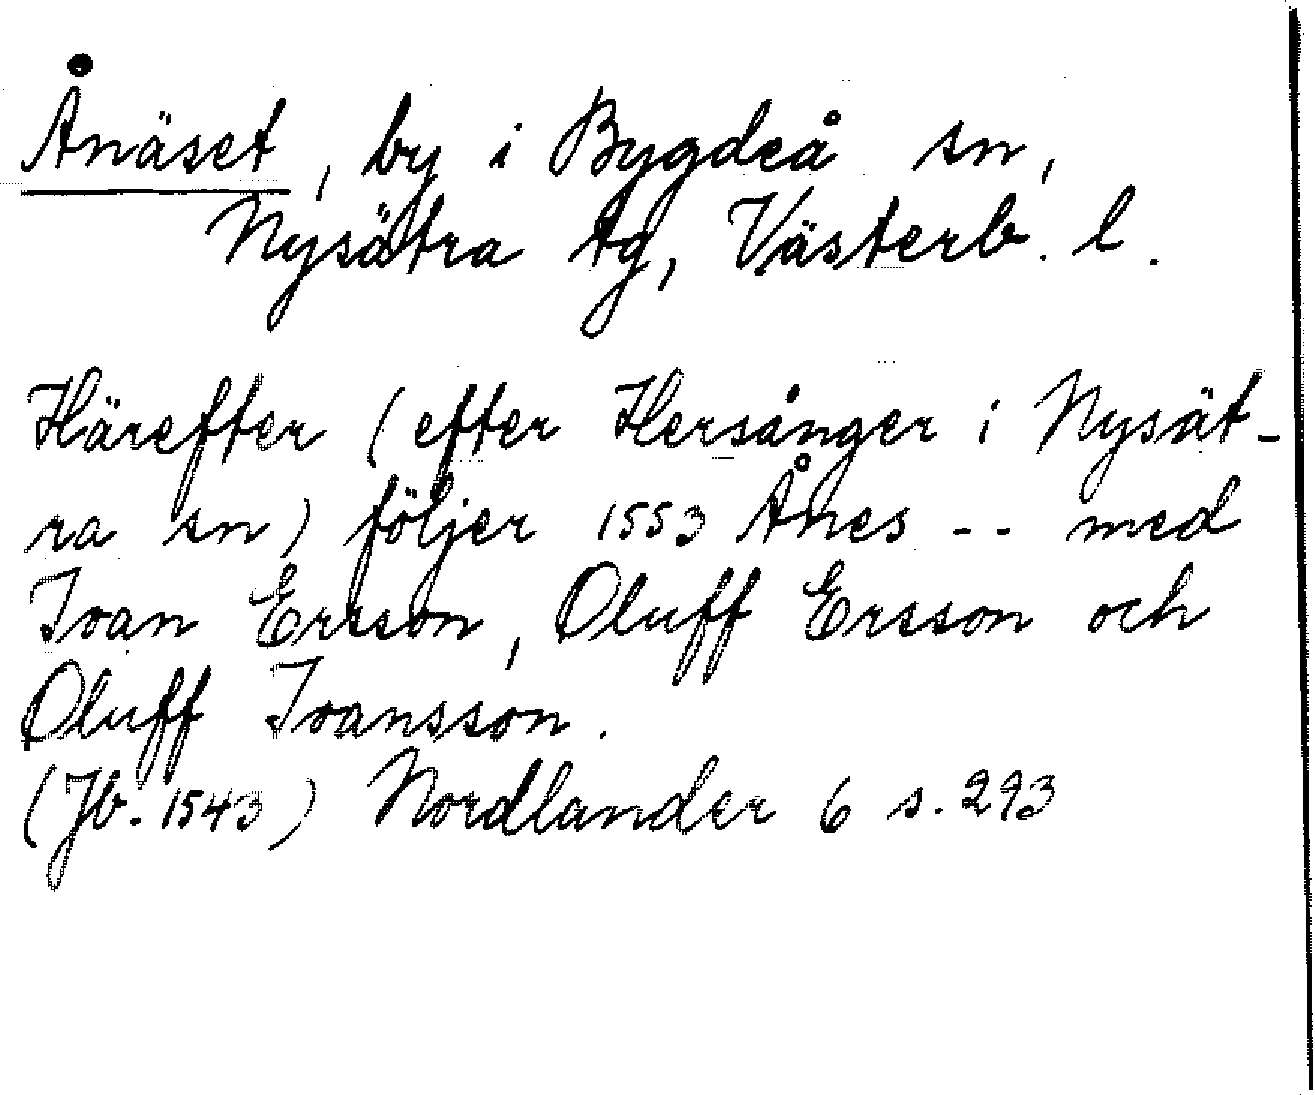 Ånäset, by i Bygdeå sn,
Nysätra tg, Västerb. l.
Härefter (efter Hersånger i Nysät-
ra sn) följer 1553 Ånes -- med
Ivan Ersson, Oluff Ersson och
Oluff Ivansson.
(Jb. 1543) Nordlander 6 s. 293